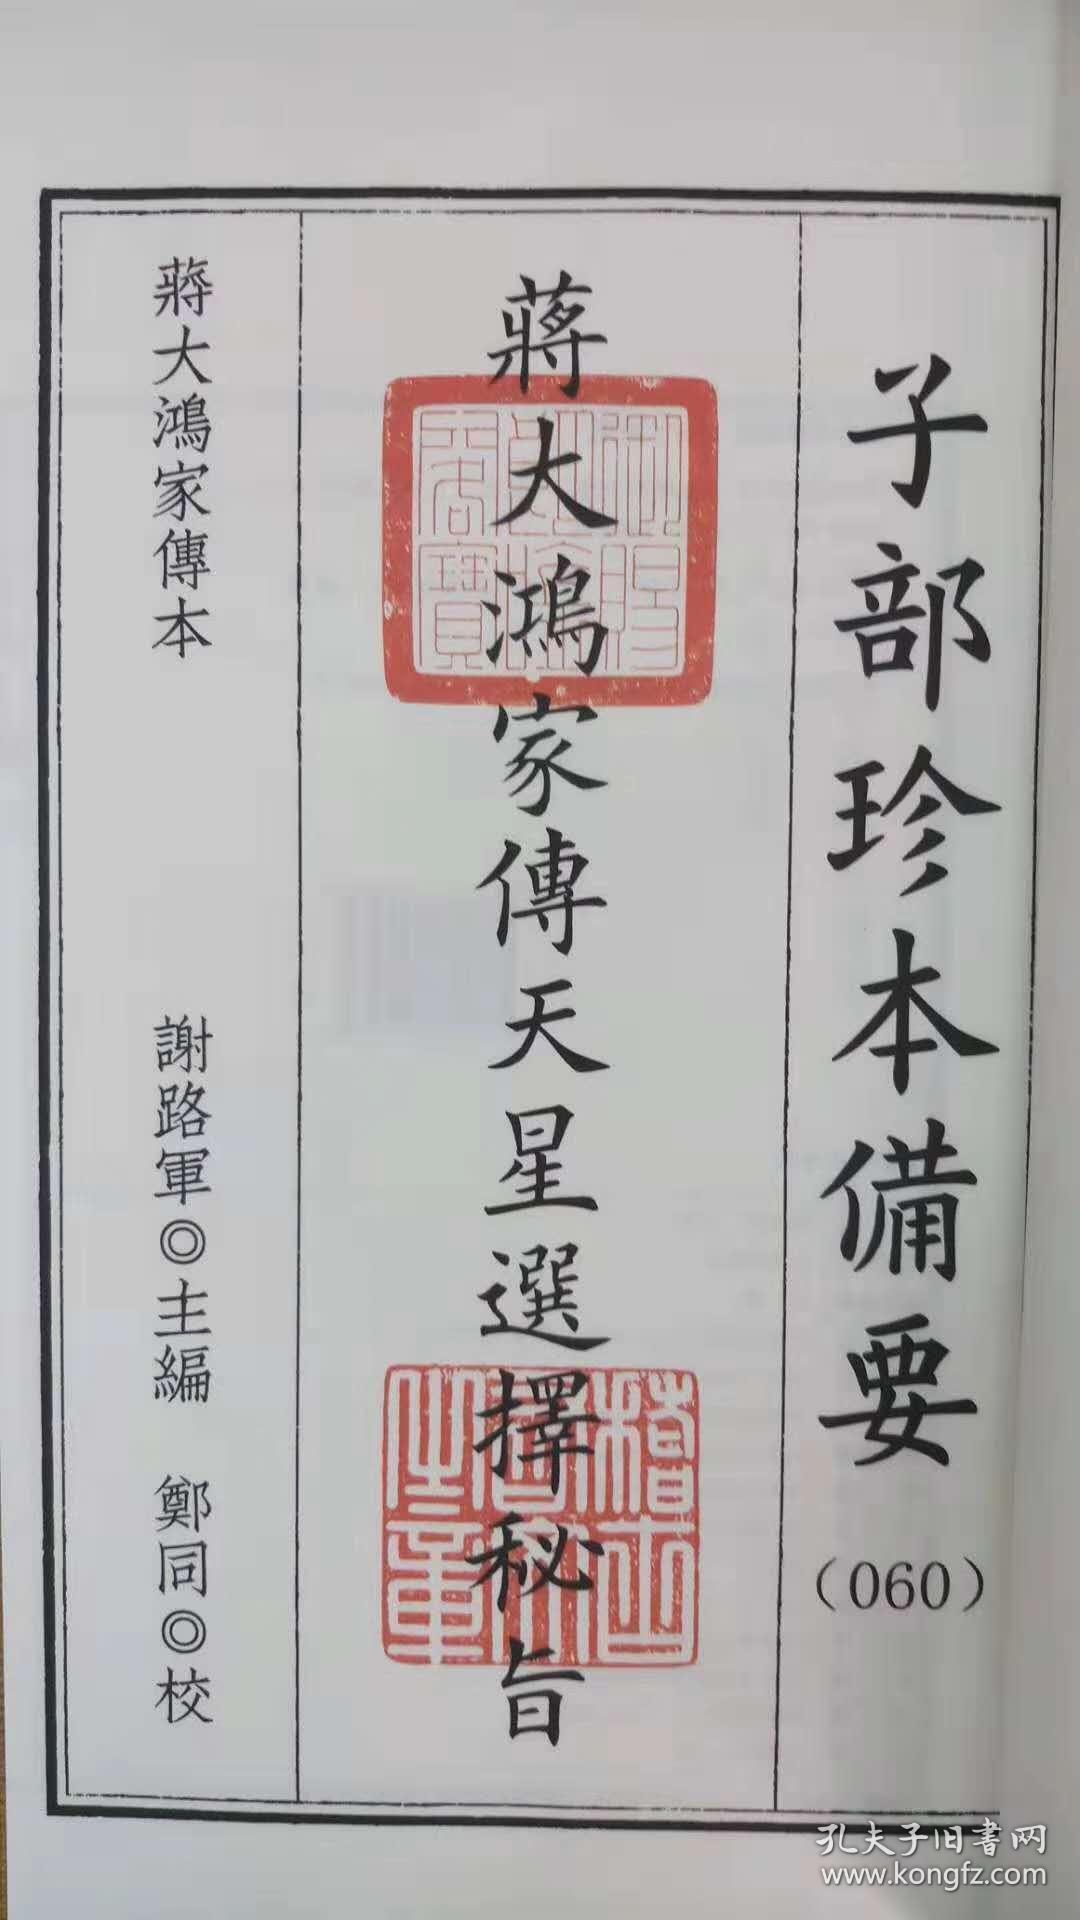 子部珍本備要
（060）
蔣大鴻家傳天星選擇秘旨
蔣大鴻家傳本
謝路軍◎主編 鄭同◎校
孔夫子旧書网
www.kongfz.com